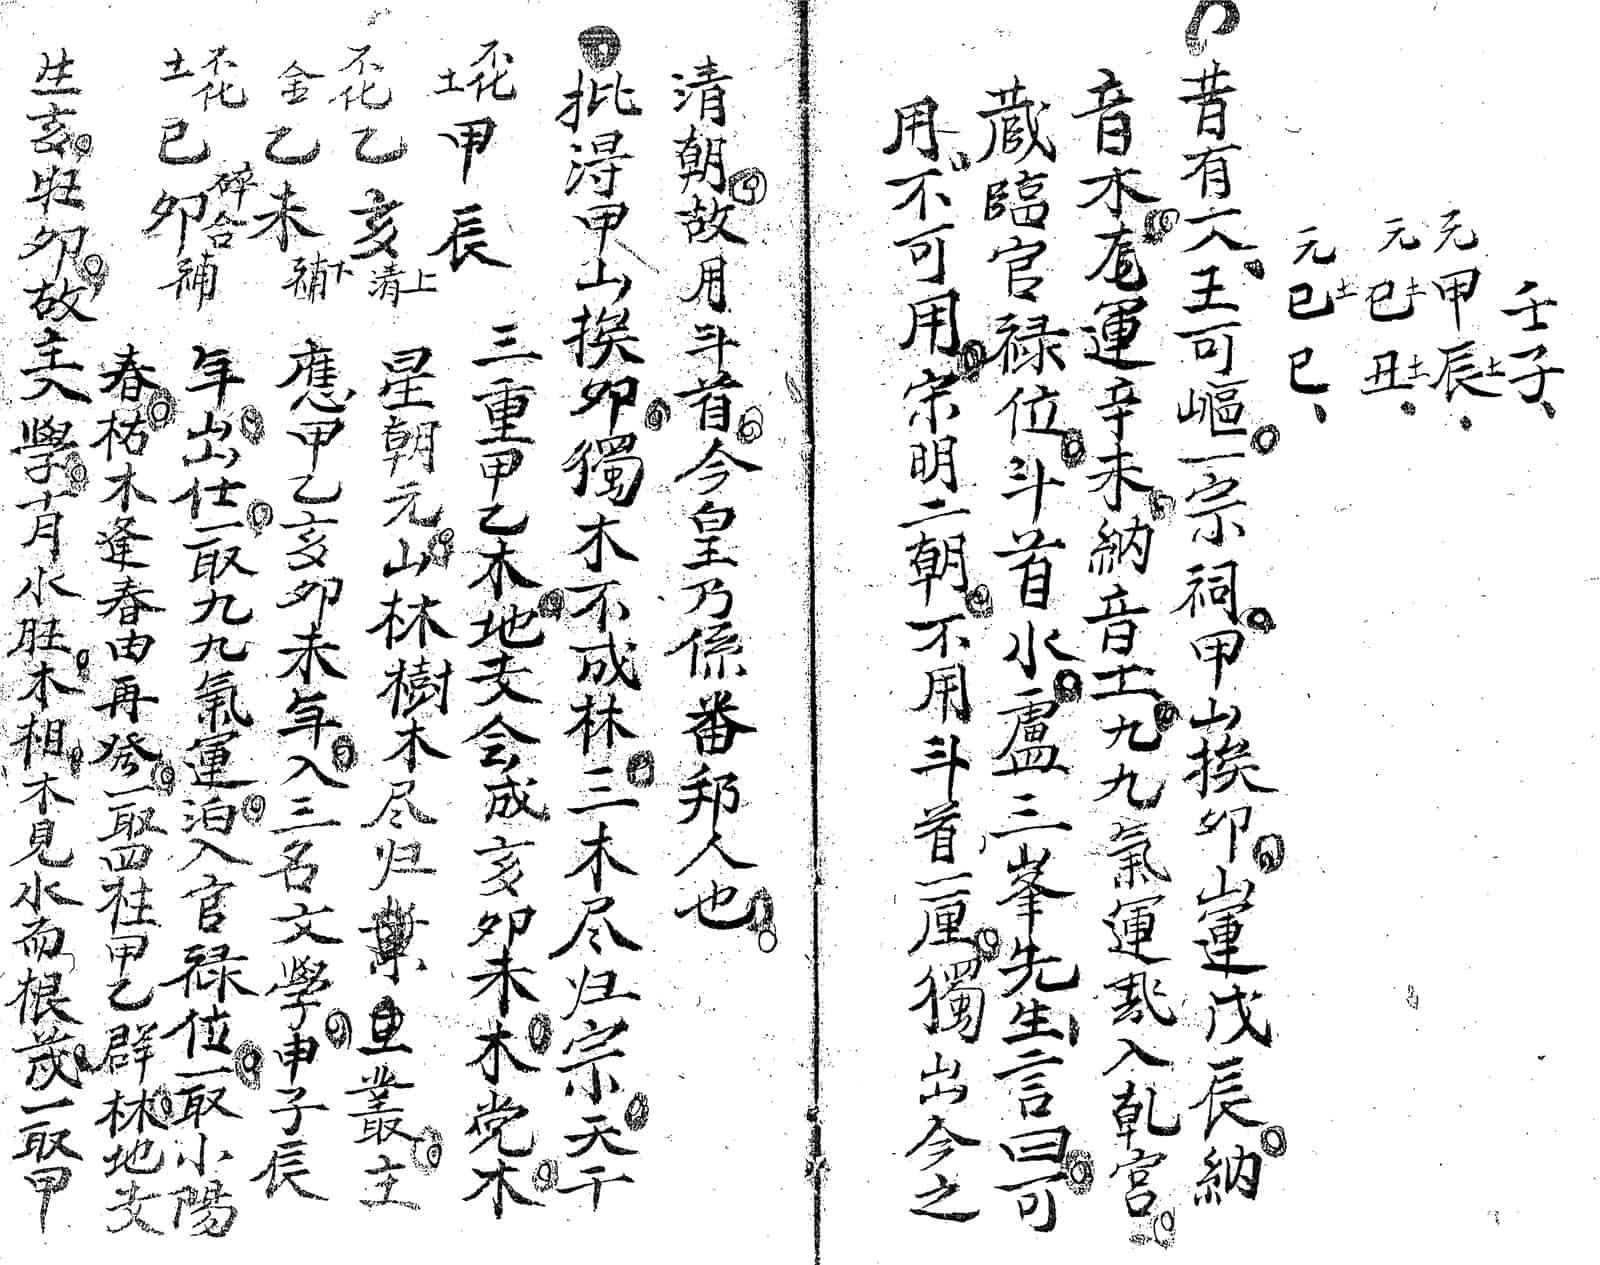 壬子
元甲辰土
元巳丑土土
元巳巳土
昔有一人王可嶇一宗祠甲山挨卯山運戊辰納
音木尅運辛未納音土九九氣運飛入乹宮
蔵臨官禄位斗首水盧三峯先生言曰可
用不可用宋明二朝不用斗首一厘獨出今之
清朝故用斗首今皇乃係番邦人也
批淂甲山挨卯獨木不成林三木尽归宗天干
三重甲乙木地支会成亥卯未木党木
星朝元山林樹木尽归業重叢主
應甲乙亥卯未年入三名文學申子辰
年出仕一取九九氣運泊入官禄位一取小陽
春枯木逢春由再發一取四柱甲乙群林地支
不化土甲辰
不化乙亥上清
金乙未下補
不化土已卯碎合補
生亥旺卯故主入學十月水旺木相木見水而根茂一取甲